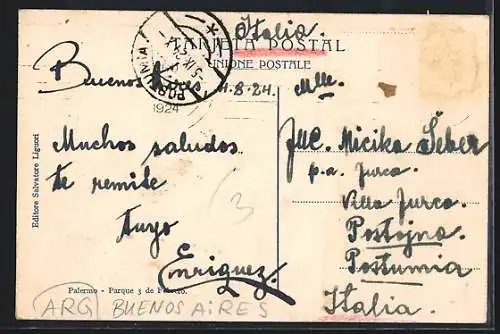 Italia.
TARJETA POSTAL
UNIONE POSTALE
POSTUMIA
Buenos
1-8-24.
1924
Mlle.
Micika Šeber
p. a. Jurca.
Villa Jurca.
Postojna.
Postumia
Italia.
Muchos saludos
te remite
tuyo
Enriquez.
3
Editore Salvatore Liguori
Palermo - Parque 3 de Febrero.
ARG BUENOS AIRES